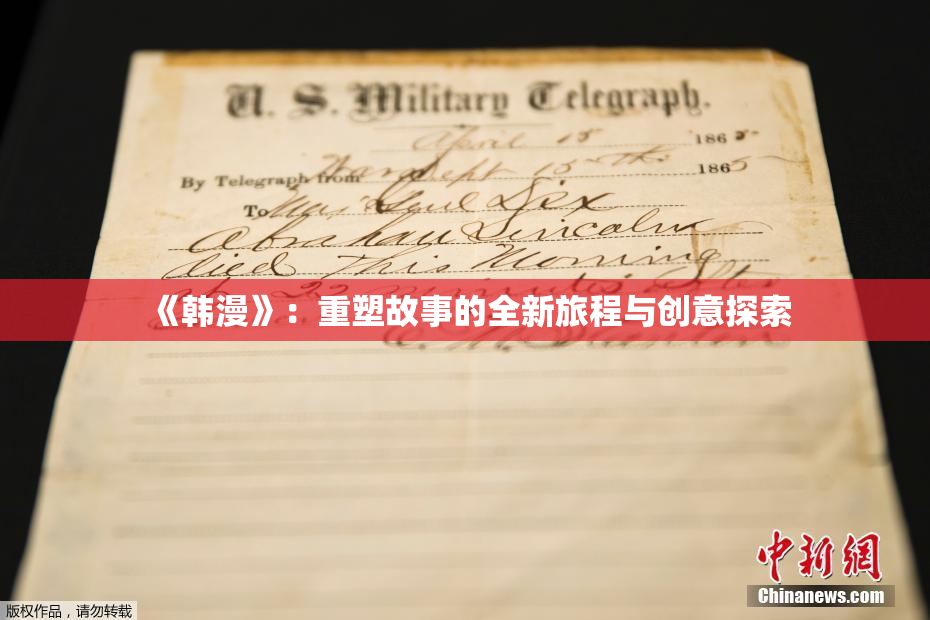 U. S. Military Telegraph.
April 15 1865
By Telegraph from War Dept 15th 1865
To Maj Genl Dix
Abraham Lincoln
died This Morning
at 22 minutes after
《韩漫》：重塑故事的全新旅程与创意探索
中新网
Chinanews.com
版权作品，请勿转载